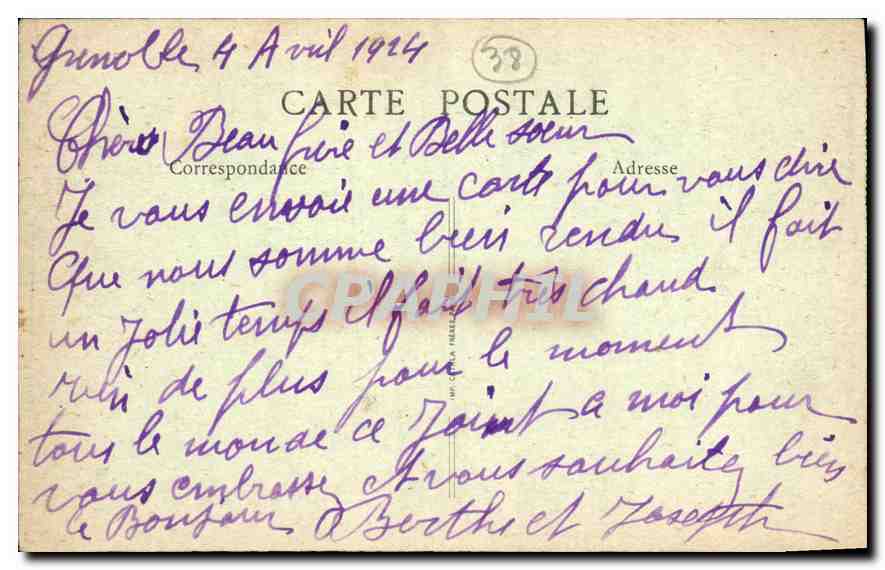 Grenoble 4 Avril 1924
38
CARTE POSTALE
Chers Beau frère et Belle soeur
Correspondance Adresse
Je vous envoie une carte pour vous dire
que nous somme bien rendu il fait
un Jolie temps il fait très chaud
rien de plus pour le moment
tous le monde ce Joint a moi pour
vous embrasse et vous souhaite bien
le Bonjour Berthe et Joseph
CPAPHIL